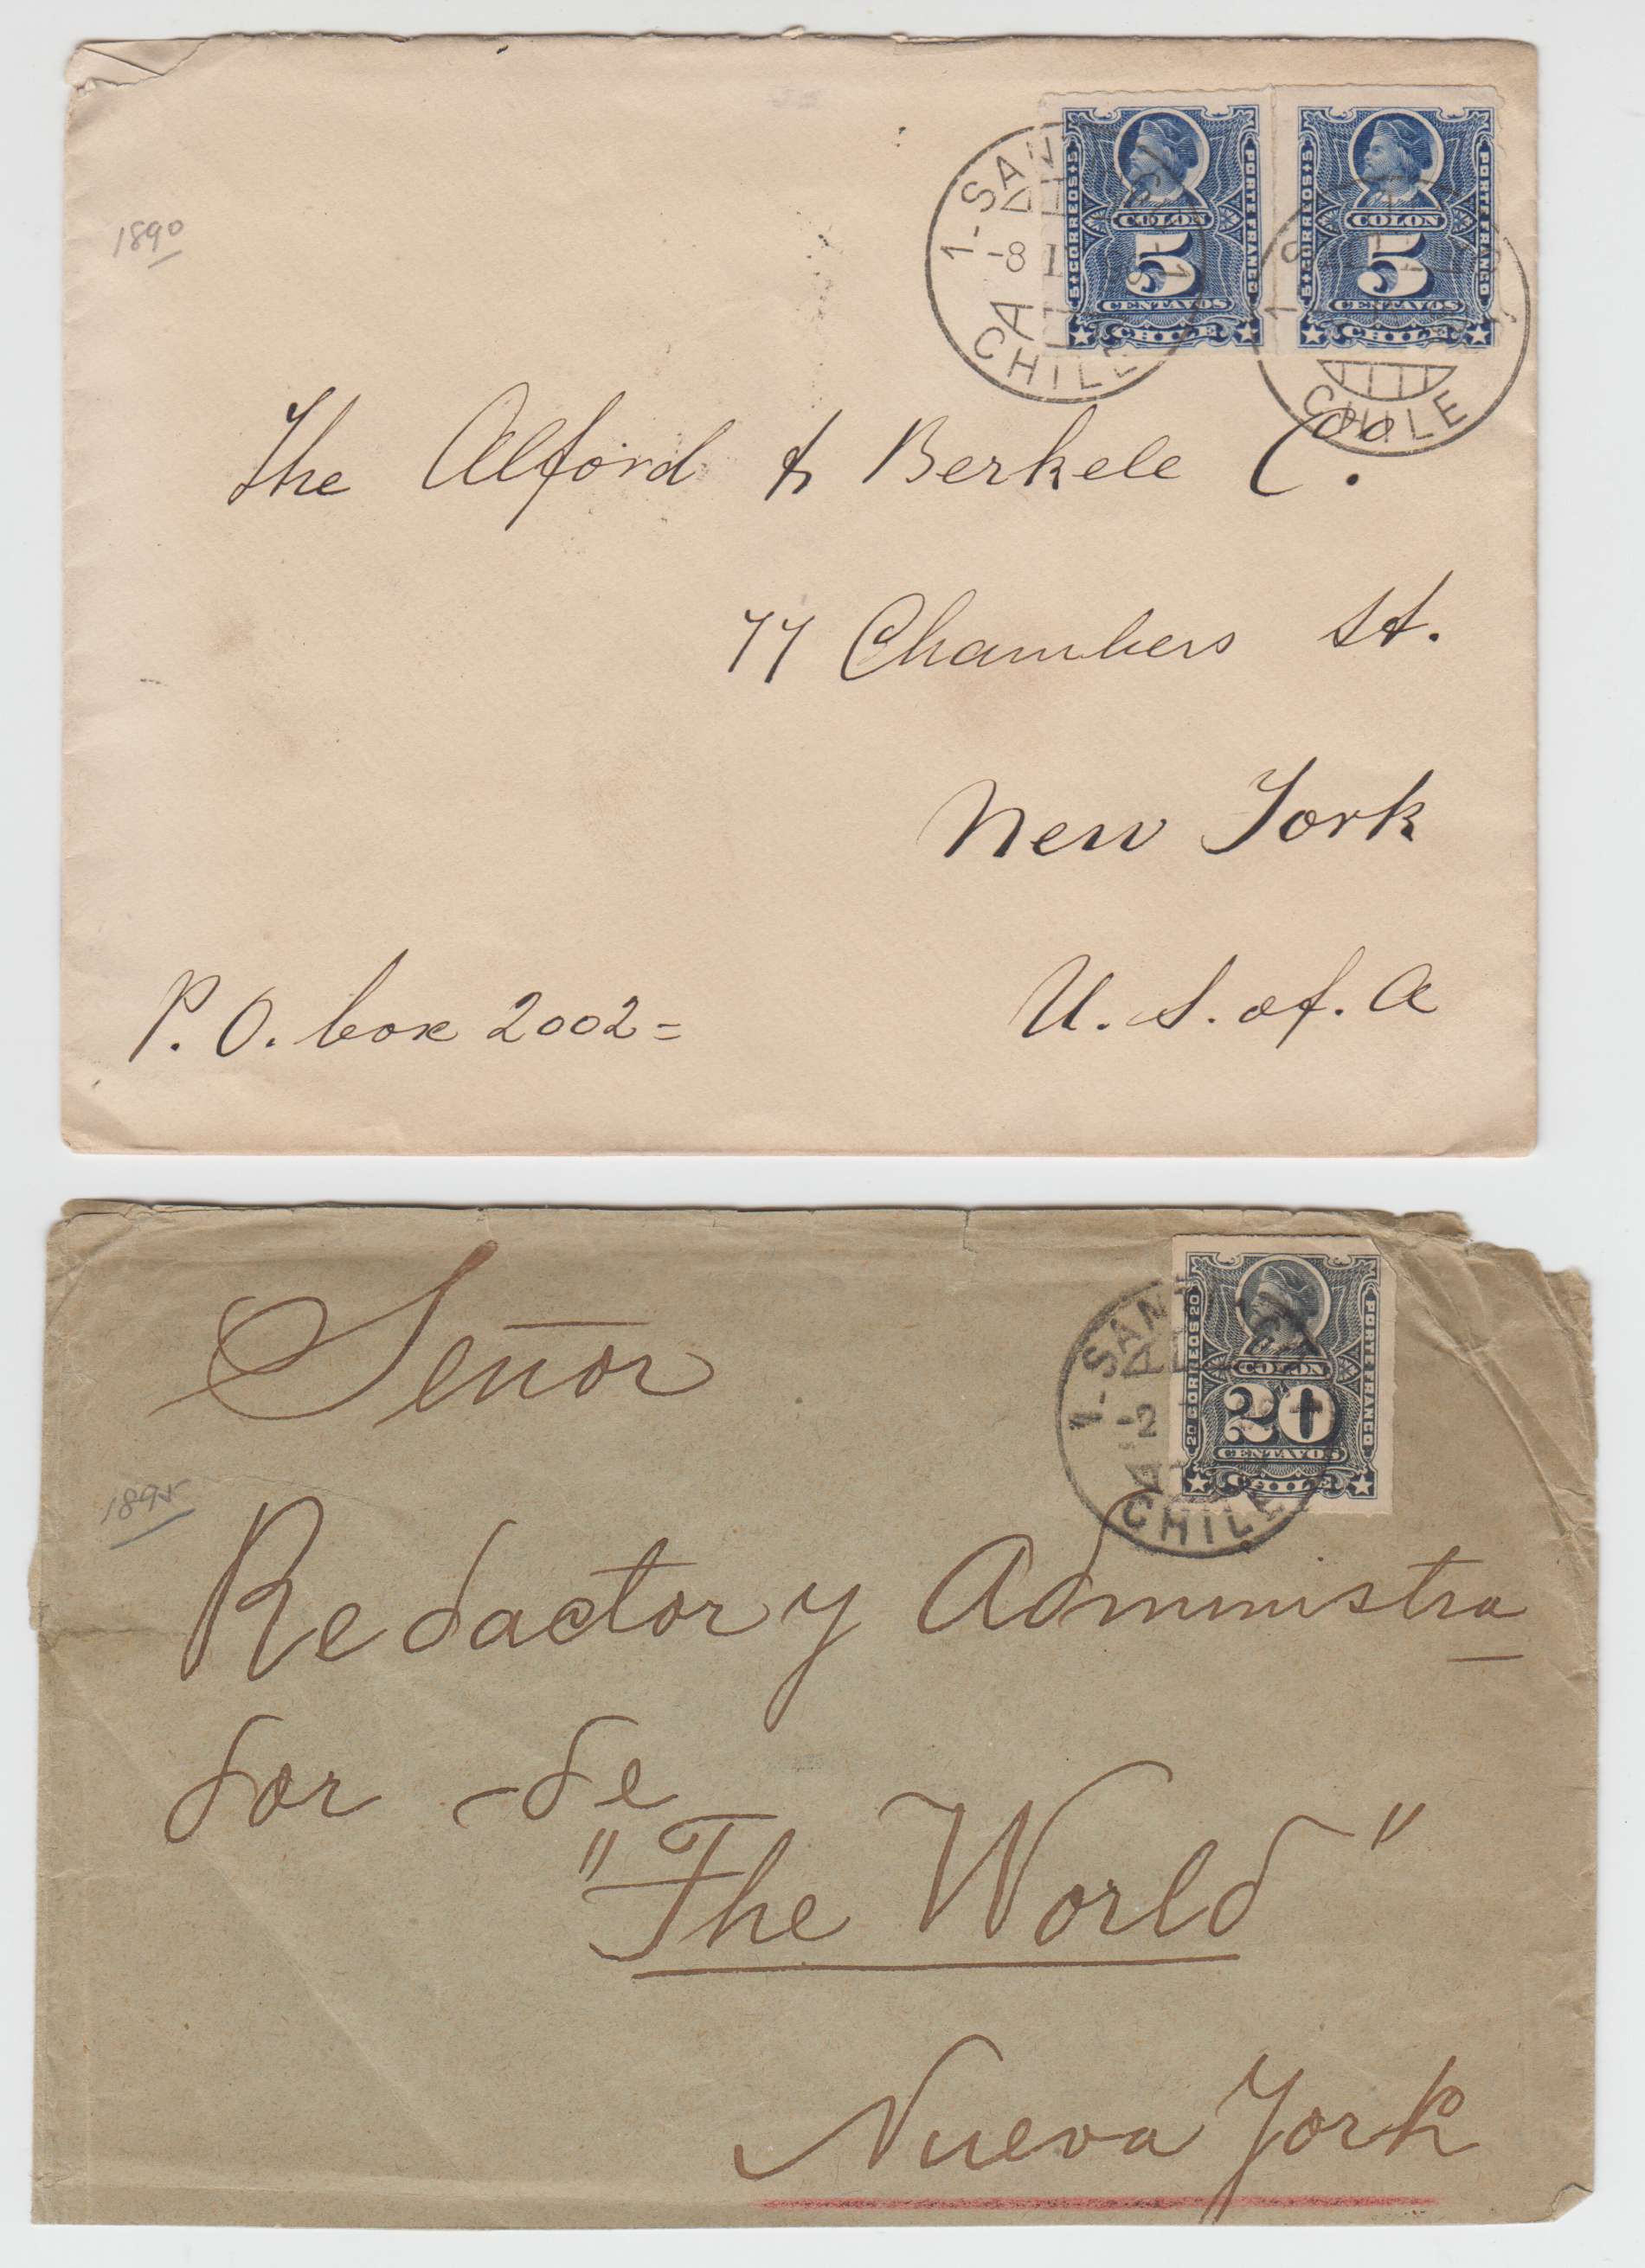 1890
1-SAN
-8 I
A
CHILE
5 CORREOS 5
PORTE FRANCO
COLON
5
CENTAVOS
CHILE
5 CORREOS 5
PORTE FRANCO
COLON
5
CENTAVOS
CHILE
1
CHILE
The Alford & Berkele Co.
77 Chambers St.
New York
P.O. box 2002=
U.S. of. A
20 CORREOS 20
PORTE FRANCO
COLON
20
CENTAVOS
CHILE
1-SAN
-2
CHILE
Señor
1895
Redactor y Administra
dor de
"The World"
Nueva York